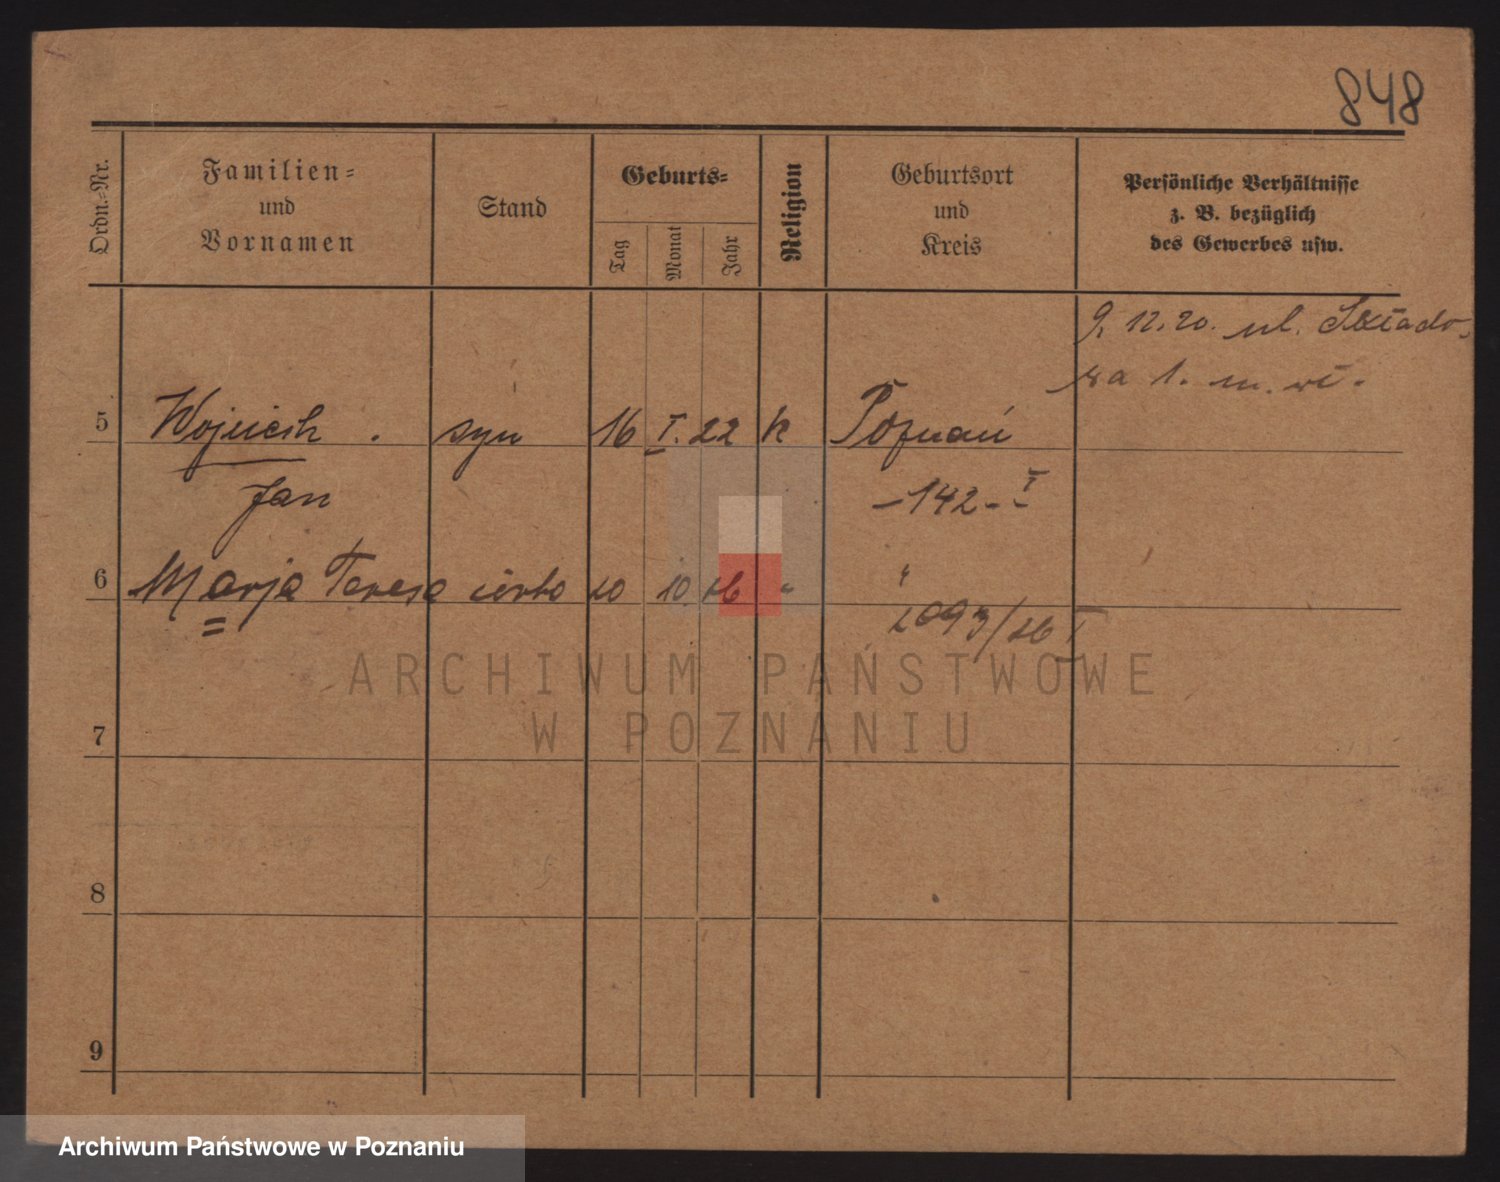 848
Ordn.-Nr.
Familien-
und
Vornamen
Stand
Geburts-
Tag
Monat
Jahr
Religion
Geburtsort
und
Kreis
Persönliche Verhältnisse
z. B. bezüglich
des Gewerbes usw.
9. 12. 20. ul. Składo-
wa 1. m. wł.
5 Wojciech syn 16 I. 22 k Poznań
Jan -142- I
6 Marja Teresa córka 20 10 26 " "
2093/26 I
7
8
9
ARCHIWUM PAŃSTWOWE
W POZNANIU
Archiwum Państwowe w Poznaniu